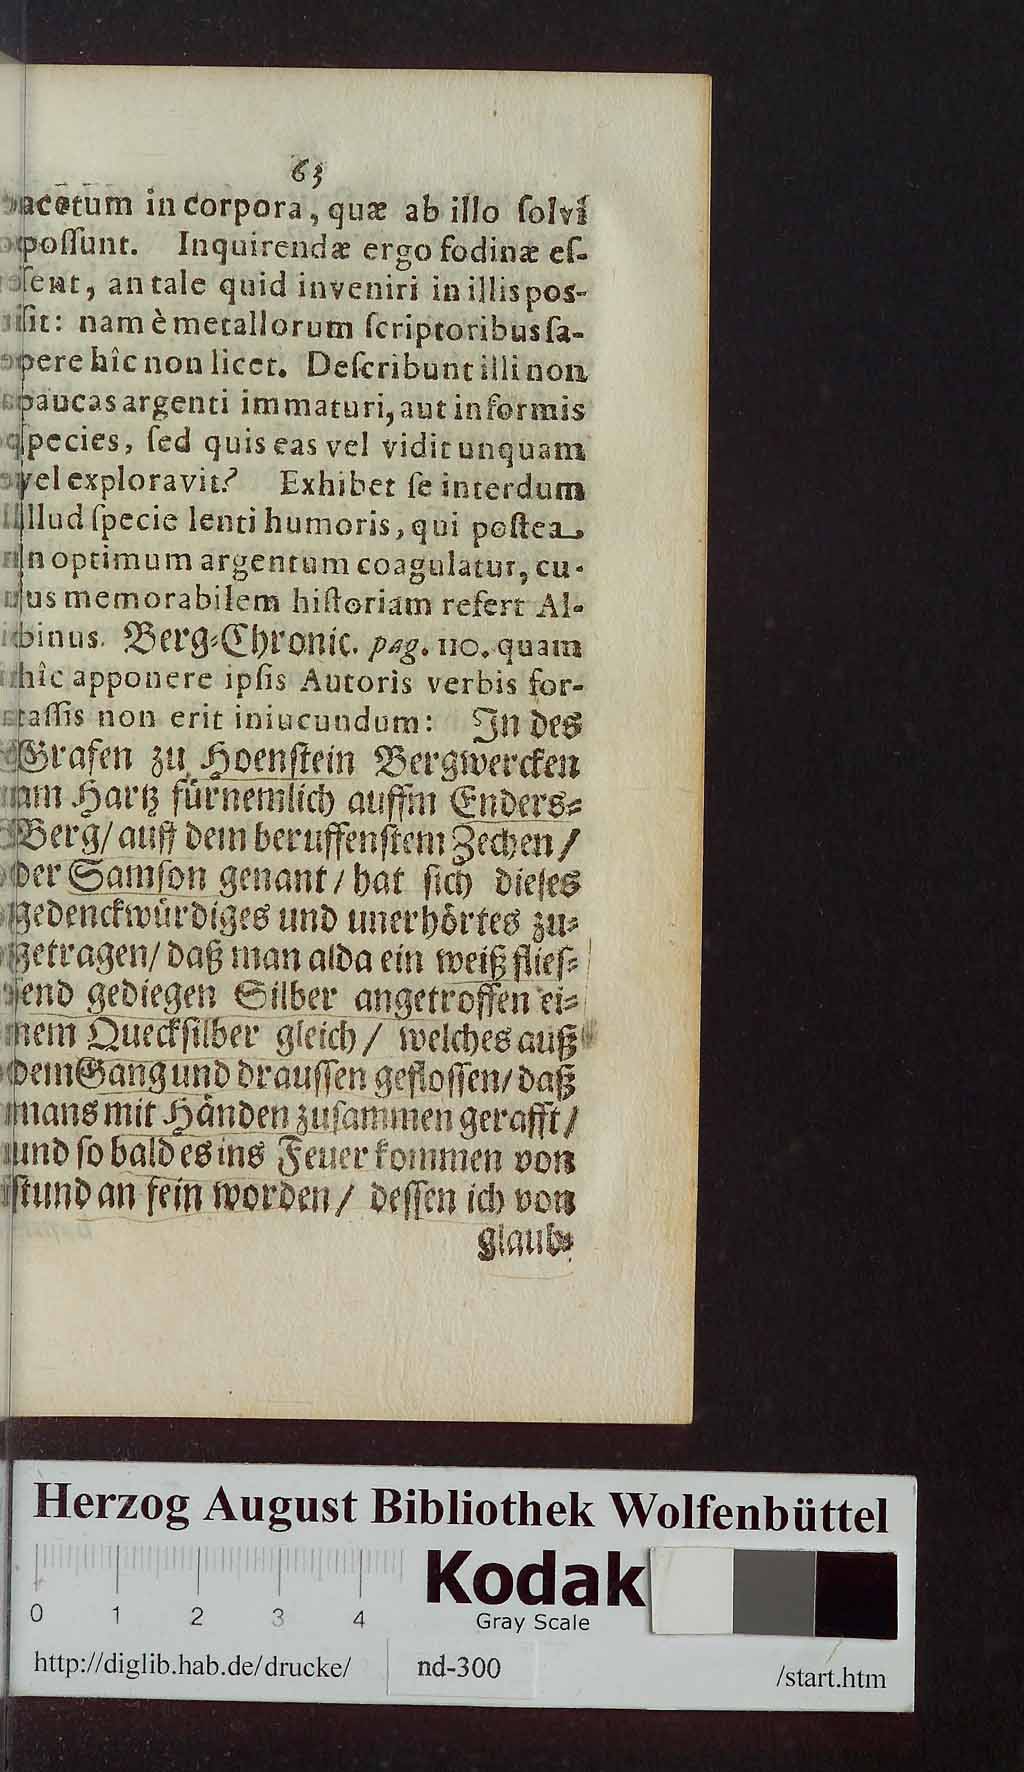 63
acetum in corpora, quæ ab illo ſolvi
poſſunt. Inquirendæ ergo fodinæ eſ-
ſent, an tale quid inveniri in illis pos-
ſit: nam è metallorum ſcriptoribus ſa-
pere hîc non licet. Deſcribunt illi non
paucas argenti immaturi, aut informis
ſpecies, ſed quis eas vel vidit unquam
vel exploravit? Exhibet ſe interdum
illud ſpecie lenti humoris, qui poſtea
in optimum argentum coagulatur, cu-
jus memorabilem hiſtoriam refert Al-
binus. Berg-Chronic. pag. 110. quam
hîc apponere ipſis Autoris verbis for-
taſſis non erit iniucundum: In des
Grafen zu Hoenſtein Bergwercken
am Hartz fürnemlich auffm Enders-
Berg/ auff dem beruffenſtem Zechen /
der Samſon genant / hat ſich dieſes
gedenckwürdiges und unerhörtes zu-
getragen/ daß man alda ein weiß flieſ-
ſend gediegen Silber angetroffen ei-
nem Queckſilber gleich / welches auß
dem Gang und drauſſen gefloſſen/ daß
mans mit Händen zuſammen gerafft /
und ſo bald es ins Feuer kommen von
ſtund an fein worden / deſſen ich von
glaub-
Herzog August Bibliothek Wolfenbüttel
0 1 2 3 4
Kodak
Gray Scale
http://diglib.hab.de/drucke/ nd-300 /start.htm